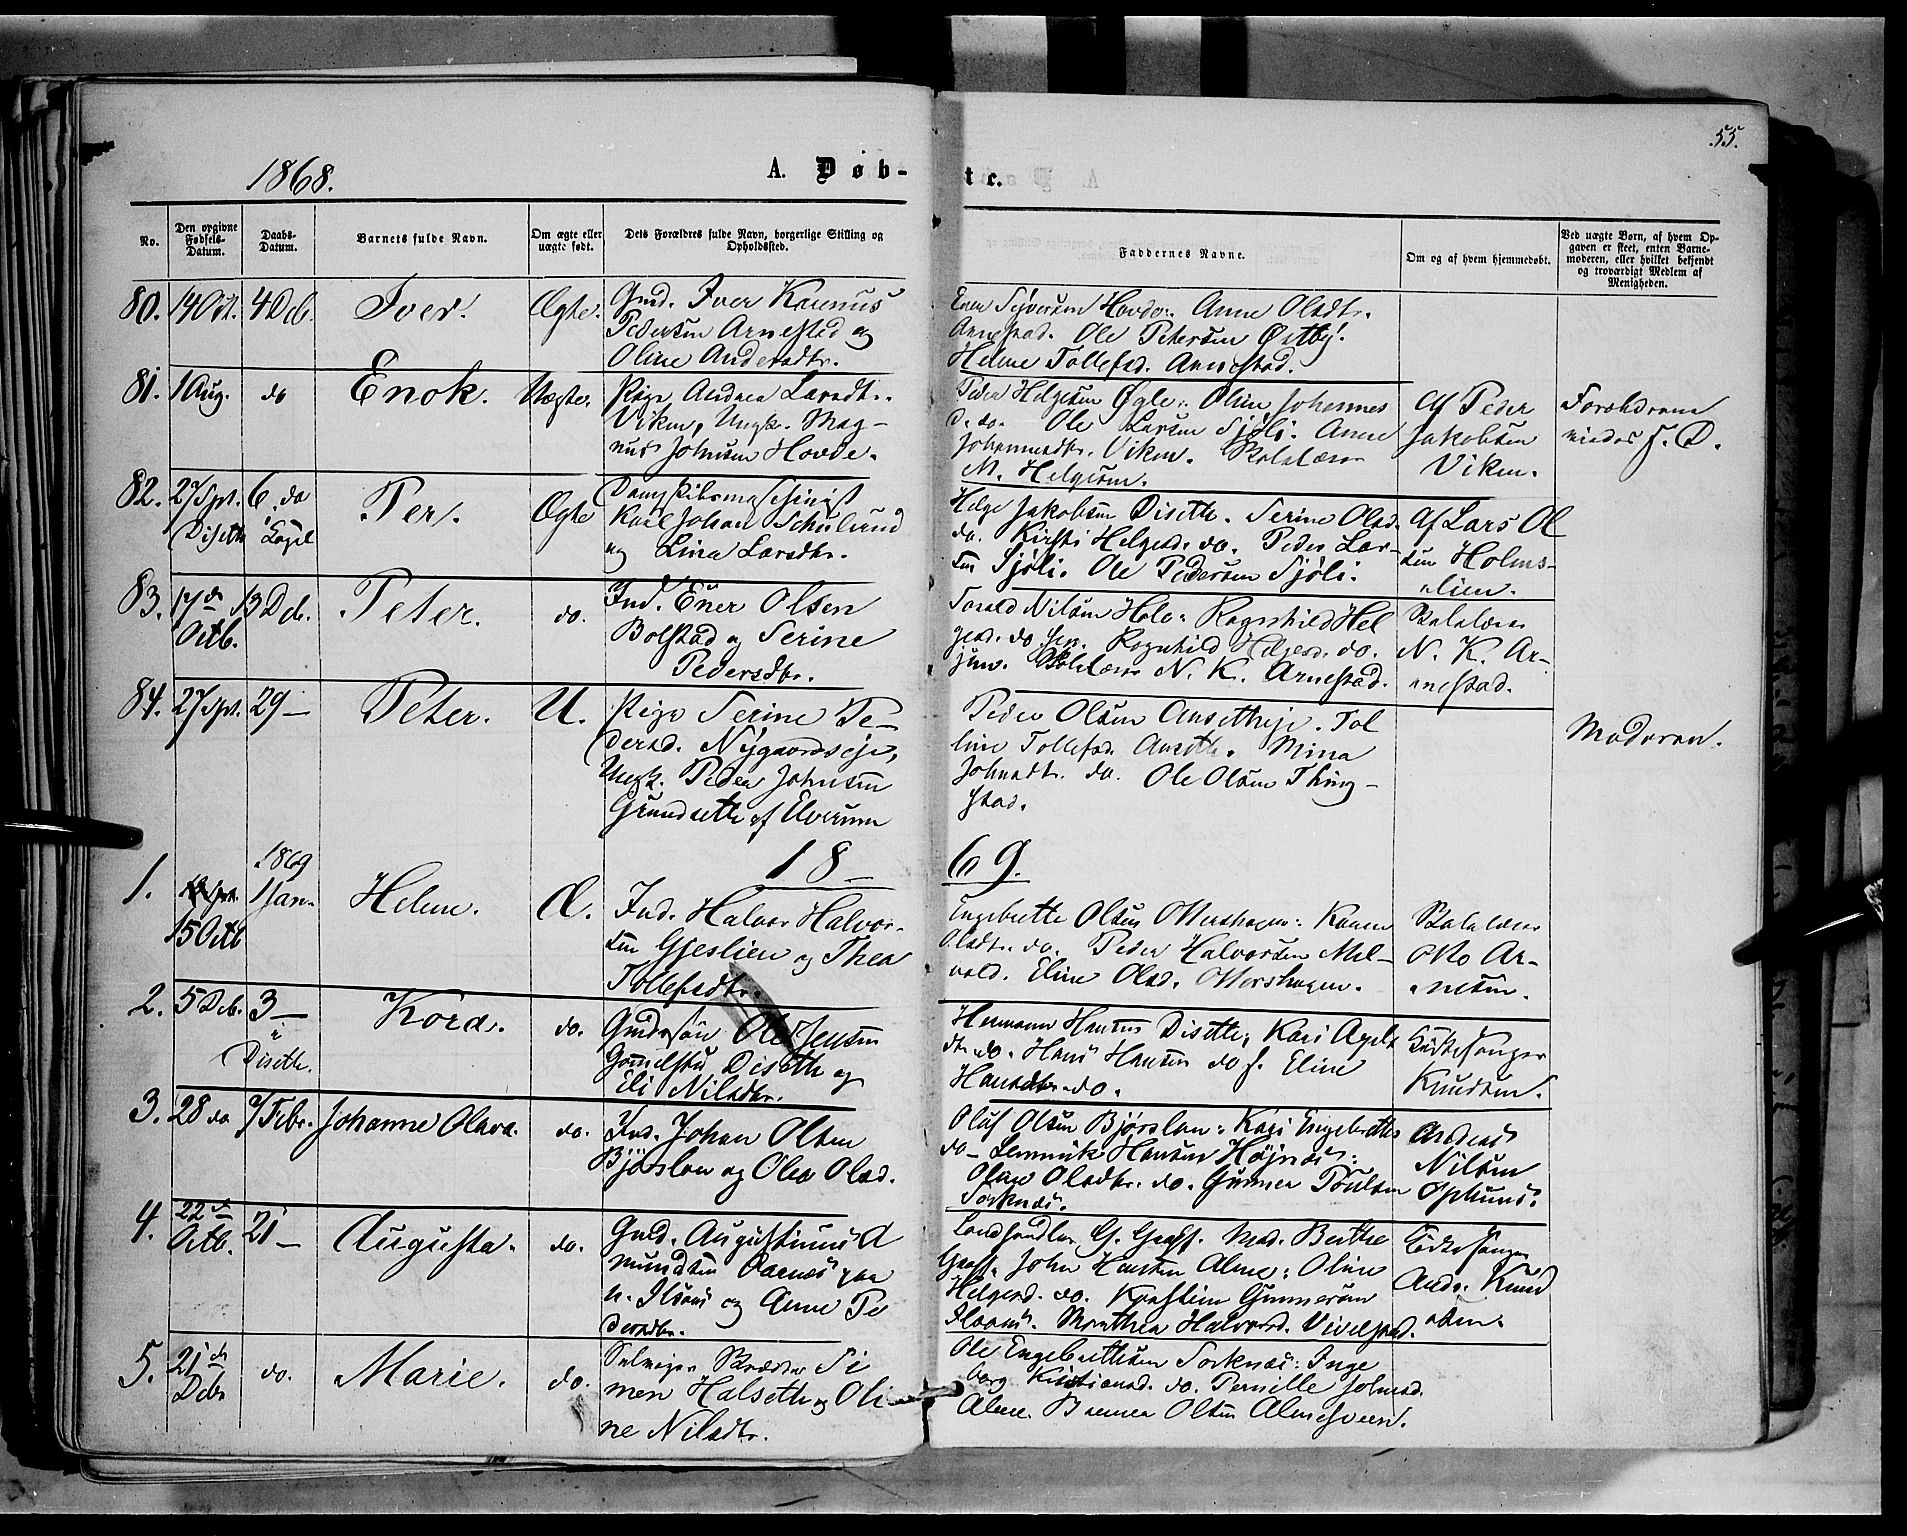 55.
1868.
A. Døb-
te.
No.
Den opgivne Fødsels-Datum.
Daabs-Datum.
Barnets fulde Navn.
Om ægte eller uægte født.
Dets Forældres fulde Navn, borgerlige Stilling og Opholdssted.
Faddernes Navne.
Om og af hvem hjemmedøbt.
Ved uægte Børn, af hvem Opgaven er skeet, enten Barnemoderen, eller hvilket bekjendt og troværdigt Medlem af Menigheden.
80. 14 Oct. 4 Deb. Iver. Ægte.
Gmd. Iver
Pedersen Arnestad og
Oline Andersdtr.
Syversen Hovde. Anne Olsdtr.
Arnestad. Ole Petersen Østby.
Helene Tollefsd. Arnestad.
81. 1 Aug. do Enok. Uægte.
Pige Andrea Larsdtr.
Viken, Ungk. Mag-
nus Johnsen Hovde.
Peder Helgesen Øgle. Oline Johannes
D. do. Ole Larsen Sjøli. Anne
Johannesdtr. Viken. Skolelærer
M. Helgesen.
Af Peder
Jakobsen
Viken.
Forældrene
82. 27 Spt. 6. do Per. Ægte
Diseth
Karl Johan
og Lina Larsdtr.
Helge Jakobsen Diseth. Serine Olsd.
do. Kirsti Helgesd. do. Peder Lar-
sen Sjøli. Ole Pedersen Sjøli.
Af Lars Ol
sen Holms-
elien.
83. 17de 13 Deb. Peter. do.
Octb.
Ind. Ener Olsen
Bolstad og Serine
Pedersdtr.
Nilsen Ragnhild Hel
gesd. do Ragnhild Helgesd. do.
Skolelærer N. K. Arnestad.
Skolelærer
N. K. Ar-
nestad.
84. 27 Spt. 29 — Peter. U.
Pige Serine Pe-
dersd. Nygaardseje,
Ungk. Peder Johnsen
Grundseth af Elverum
Peder Olsen Ansetheje. Tol
line Tollefsd. Anseth. Mina
Johnsdtr. do. Ole Olsen Thing-
stad.
Moderen.
18 — 69.
1869
1. 1 Jan. Helene. Æ.
15 Octb
Ind. Halvor Halvor-
sen Gjeslien og Thea
Tollefsdtr.
Engebrette Olsen Karen
Olsdtr. do. Peder Halvorsen Mel-
vold. Eline Olsd.
Skolelærer
Otto Ar-
nesen.
2. 5 Deb. 3 — Kora. do.
i
Diseth.
Ole Jensen
Diseth og
Eli Nilsdtr.
Hermann Hansen Diseth, Kari
dtr. do. Hans Hansen do. Eline
Hansdtr. do.
Kirkesanger
Knudsen.
3. 28 do 7 Febr. Johanne Olava. do.
Ind. Johan Olsen
Bjørslien og Olea Olsd.
Oluf Olsen Bjørslien. Kari Engebretts
do — Hansen Højnæs.
Oline Olsdtr. do. Gunnar Poulsen
Sorknæs.
Andreas
Nilsen
Ophuus.
4. 22de 21 — Augusta. do.
Octb.
Gmd. Augustinus A
mundsen
og Anne Pe
dersdtr.
Landhandler G. Graff. Mad. Berthe
Graff. John Hansen Alme. Oline
Helgesd. do. Gunnersen
Morthea Halvorsd.
Kirkesanger
Andr. Knud
sen.
5. 21de do. Marie. do.
Debr
Si
men Halseth og Oli
ne Nilsdtr.
Ole Engebrettsen Sorknæs. Inge
borg Kristiansd. do. Pernille Johnsd.
Alme. Olsen